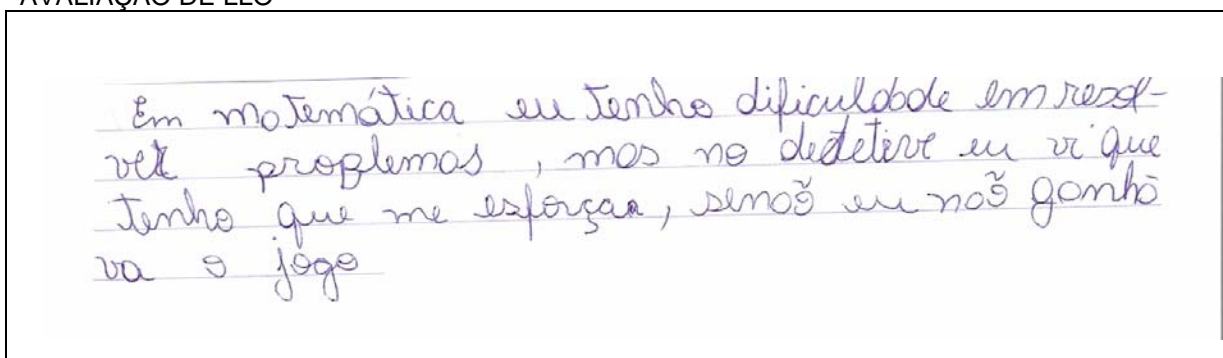 AVALIAÇÃO DE LEO
Em matemática eu tenho dificuldade em resol-
ver proplemas, mas no dedetive eu vi que
tenho que me esforçar, senão eu não ganha
va o jogo